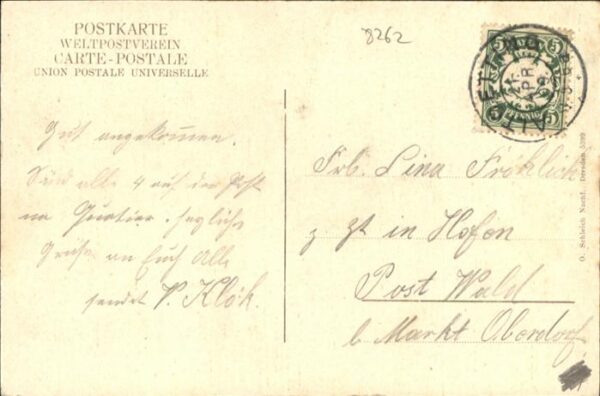 POSTKARTE
WELTPOSTVEREIN
CARTE-POSTALE
UNION POSTALE UNIVERSELLE
8262
Gut angekommen.
Sind alle 4 auf der Post
im Quartier.
Grüße an Euch Alle
sendet V.
5 5
5 5
APR
Frl. Lina Fröhlich
z. Zt in Hofen
Post Wald
b. Markt Oberdorf.
O. Schleich Nachf., Dresden 5399